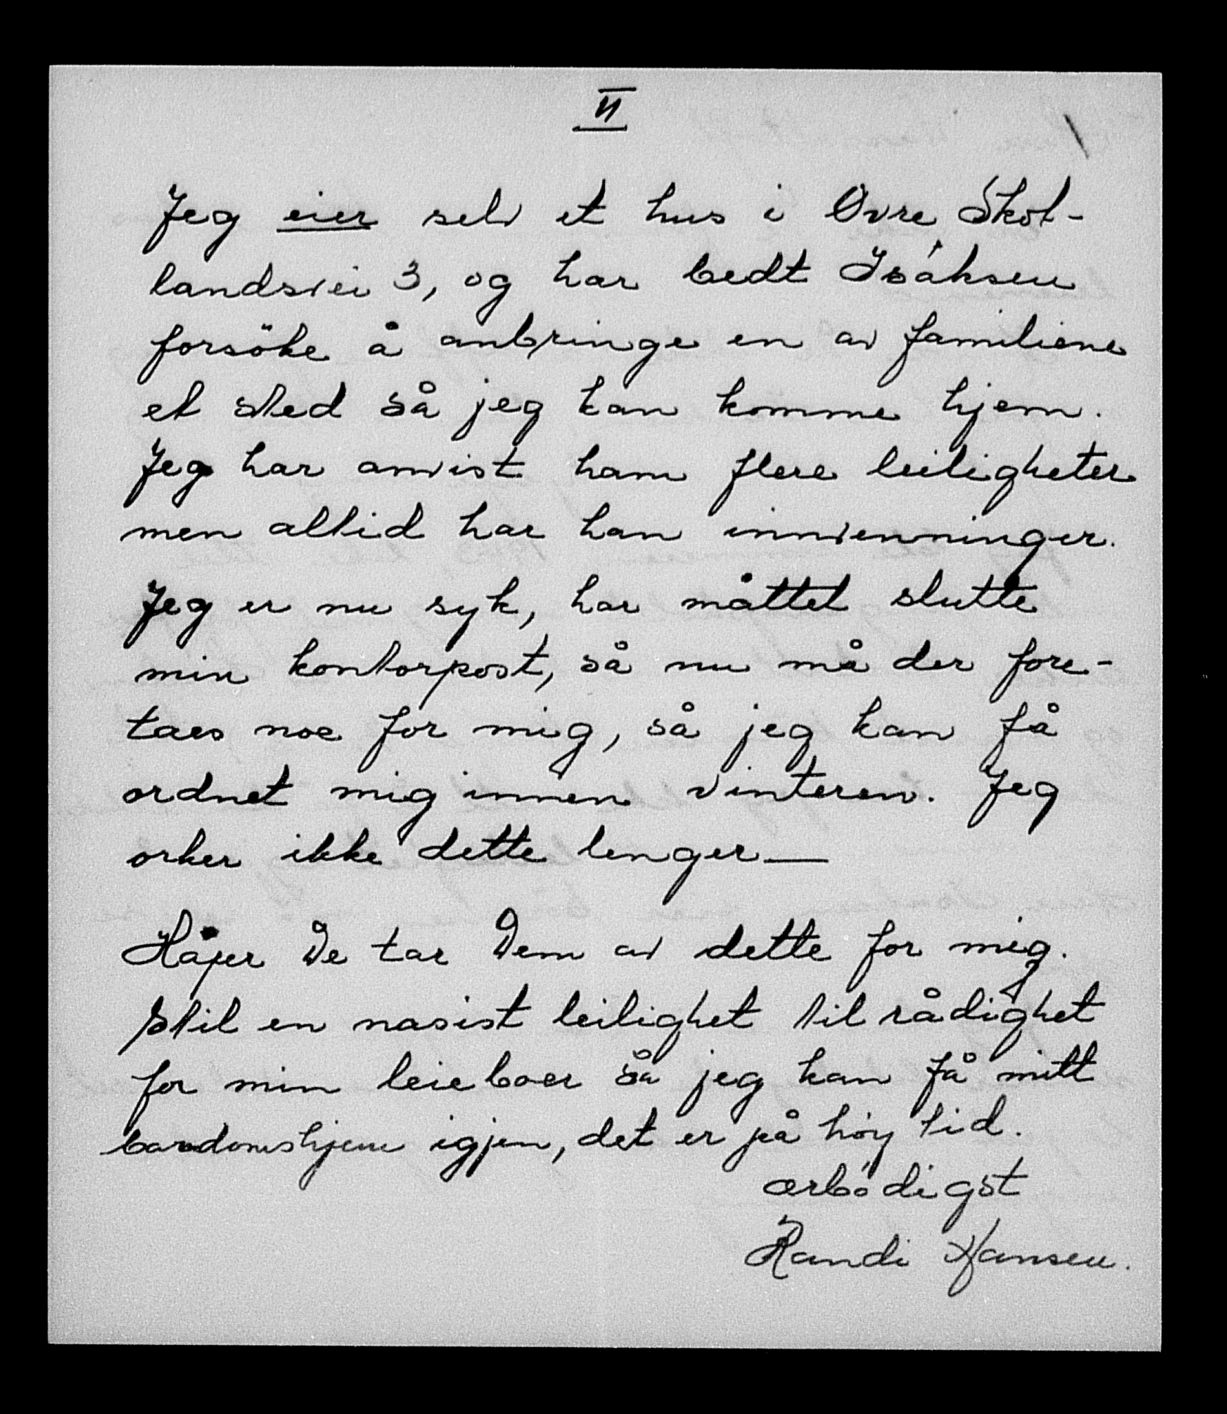 II
Jeg eier selv et hus i Øvre Skot-
landsvei 3, og har bedt Isáksen
forsöke å anbringe en av familiene
et sted så jeg kan komme hjem.
Jeg har anvist ham flere leiligheter
men alltid har han innvenninger.
Jeg er nu syk, har måttet slutte
min kontorpost, så nu må der fore-
taes noe for mig, så jeg kan få
ordnet mig innen vinteren. Jeg
orker ikke dette lenger—
Håper De tar Dem av dette for mig.
Stil en nasist leilighet til rådighet
for min leieboer så jeg kan få mitt
barndomshjem igjen, det er på höy tid.
ærbödigst
Randi Hansen.